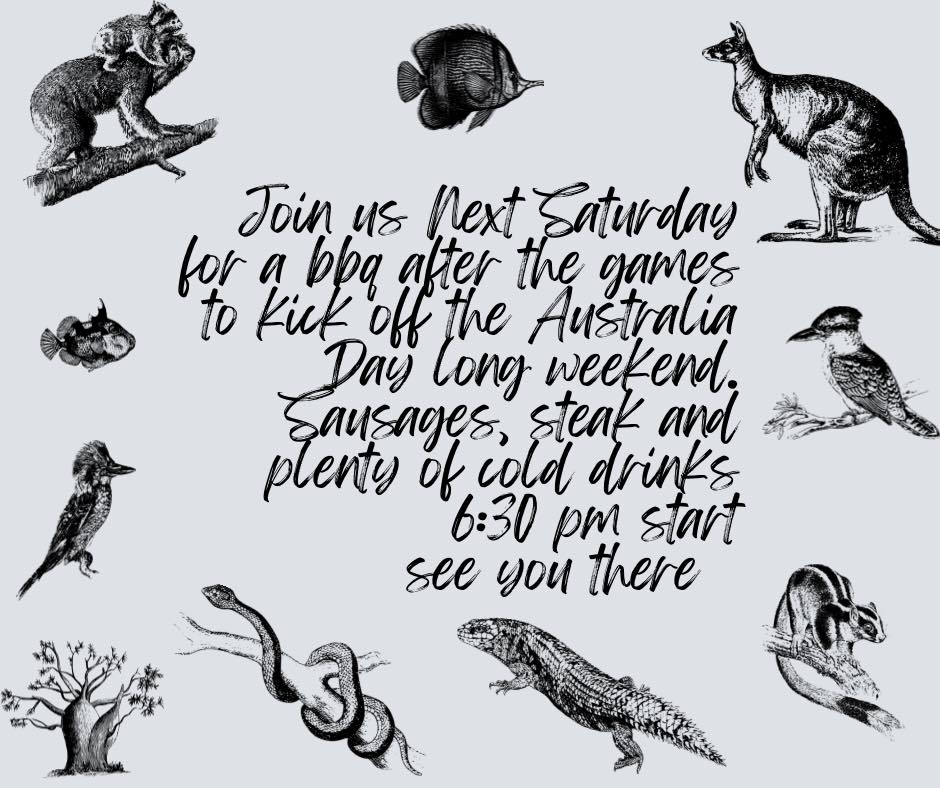 Join us Next Saturday
for a bbq after the games
to kick off the Australia
Day long weekend.
Sausages, steak and
plenty of cold drinks
6:30 pm start
see you there